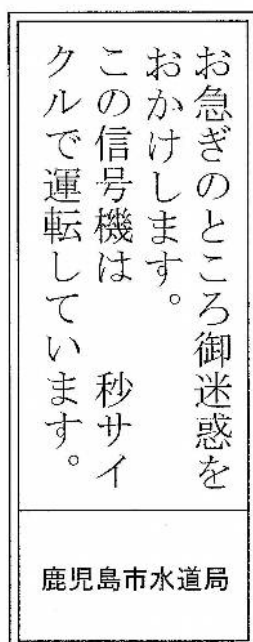 お急ぎのところ御迷惑を
おかけします。
この信号機は　　秒サイ
クルで運転しています。
鹿児島市水道局